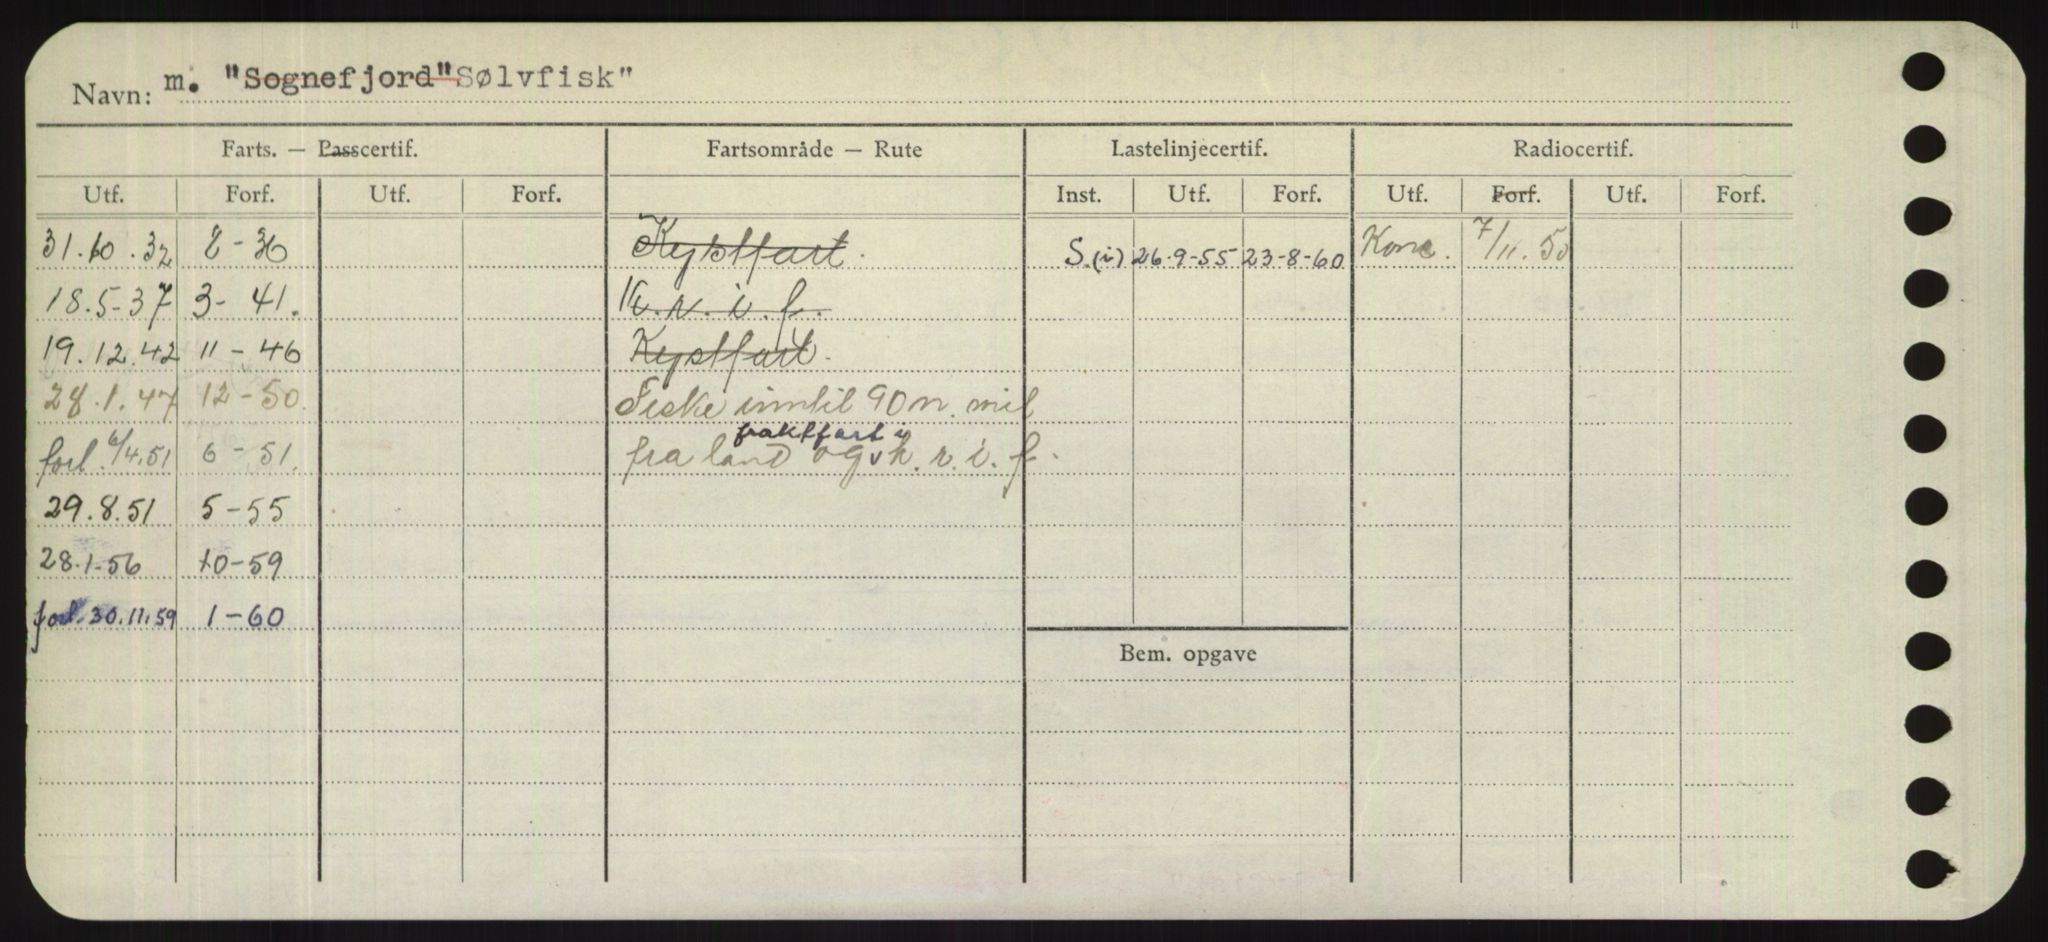 Navn: m. "Sognefjord" Sølvfisk"
Farts. — Passcertif. Fartsområde — Rute Lastelinjecertif. Radiocertif.
Utf. Forf. Utf. Forf. Inst. Utf. Forf. Utf. Forf. Utf. Forf.
31.10.32 2-36 Kystfart. S.(i) 26-9-55 23-8-60 Konc. 7/11.50
18.5-37 3-41. K.r.i.f.
19.12.42 11-46 Kystfart.
28.1.47 12-50. Fiske inntil 90 n. mil
fraktfart
forl. 6/4.51 6-51. fra land og k.r.i.f.
29.8.51 5-55
28.1.56 10-59
forl. 30.11.59 1-60
Bem. opgave